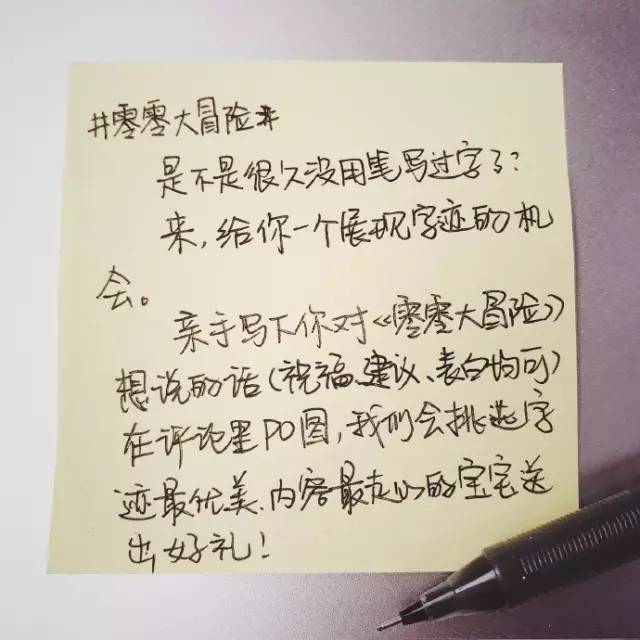 #零零大冒险#
是不是很久没用笔写过字了?
来,给你一个展现字迹的机
会。
亲手写下你对《零零大冒险》
想说的话(祝福、建议、表白均可)
在评论里PO图,我们会挑选字
迹最优美、内容最走心的宝宝送
出好礼!